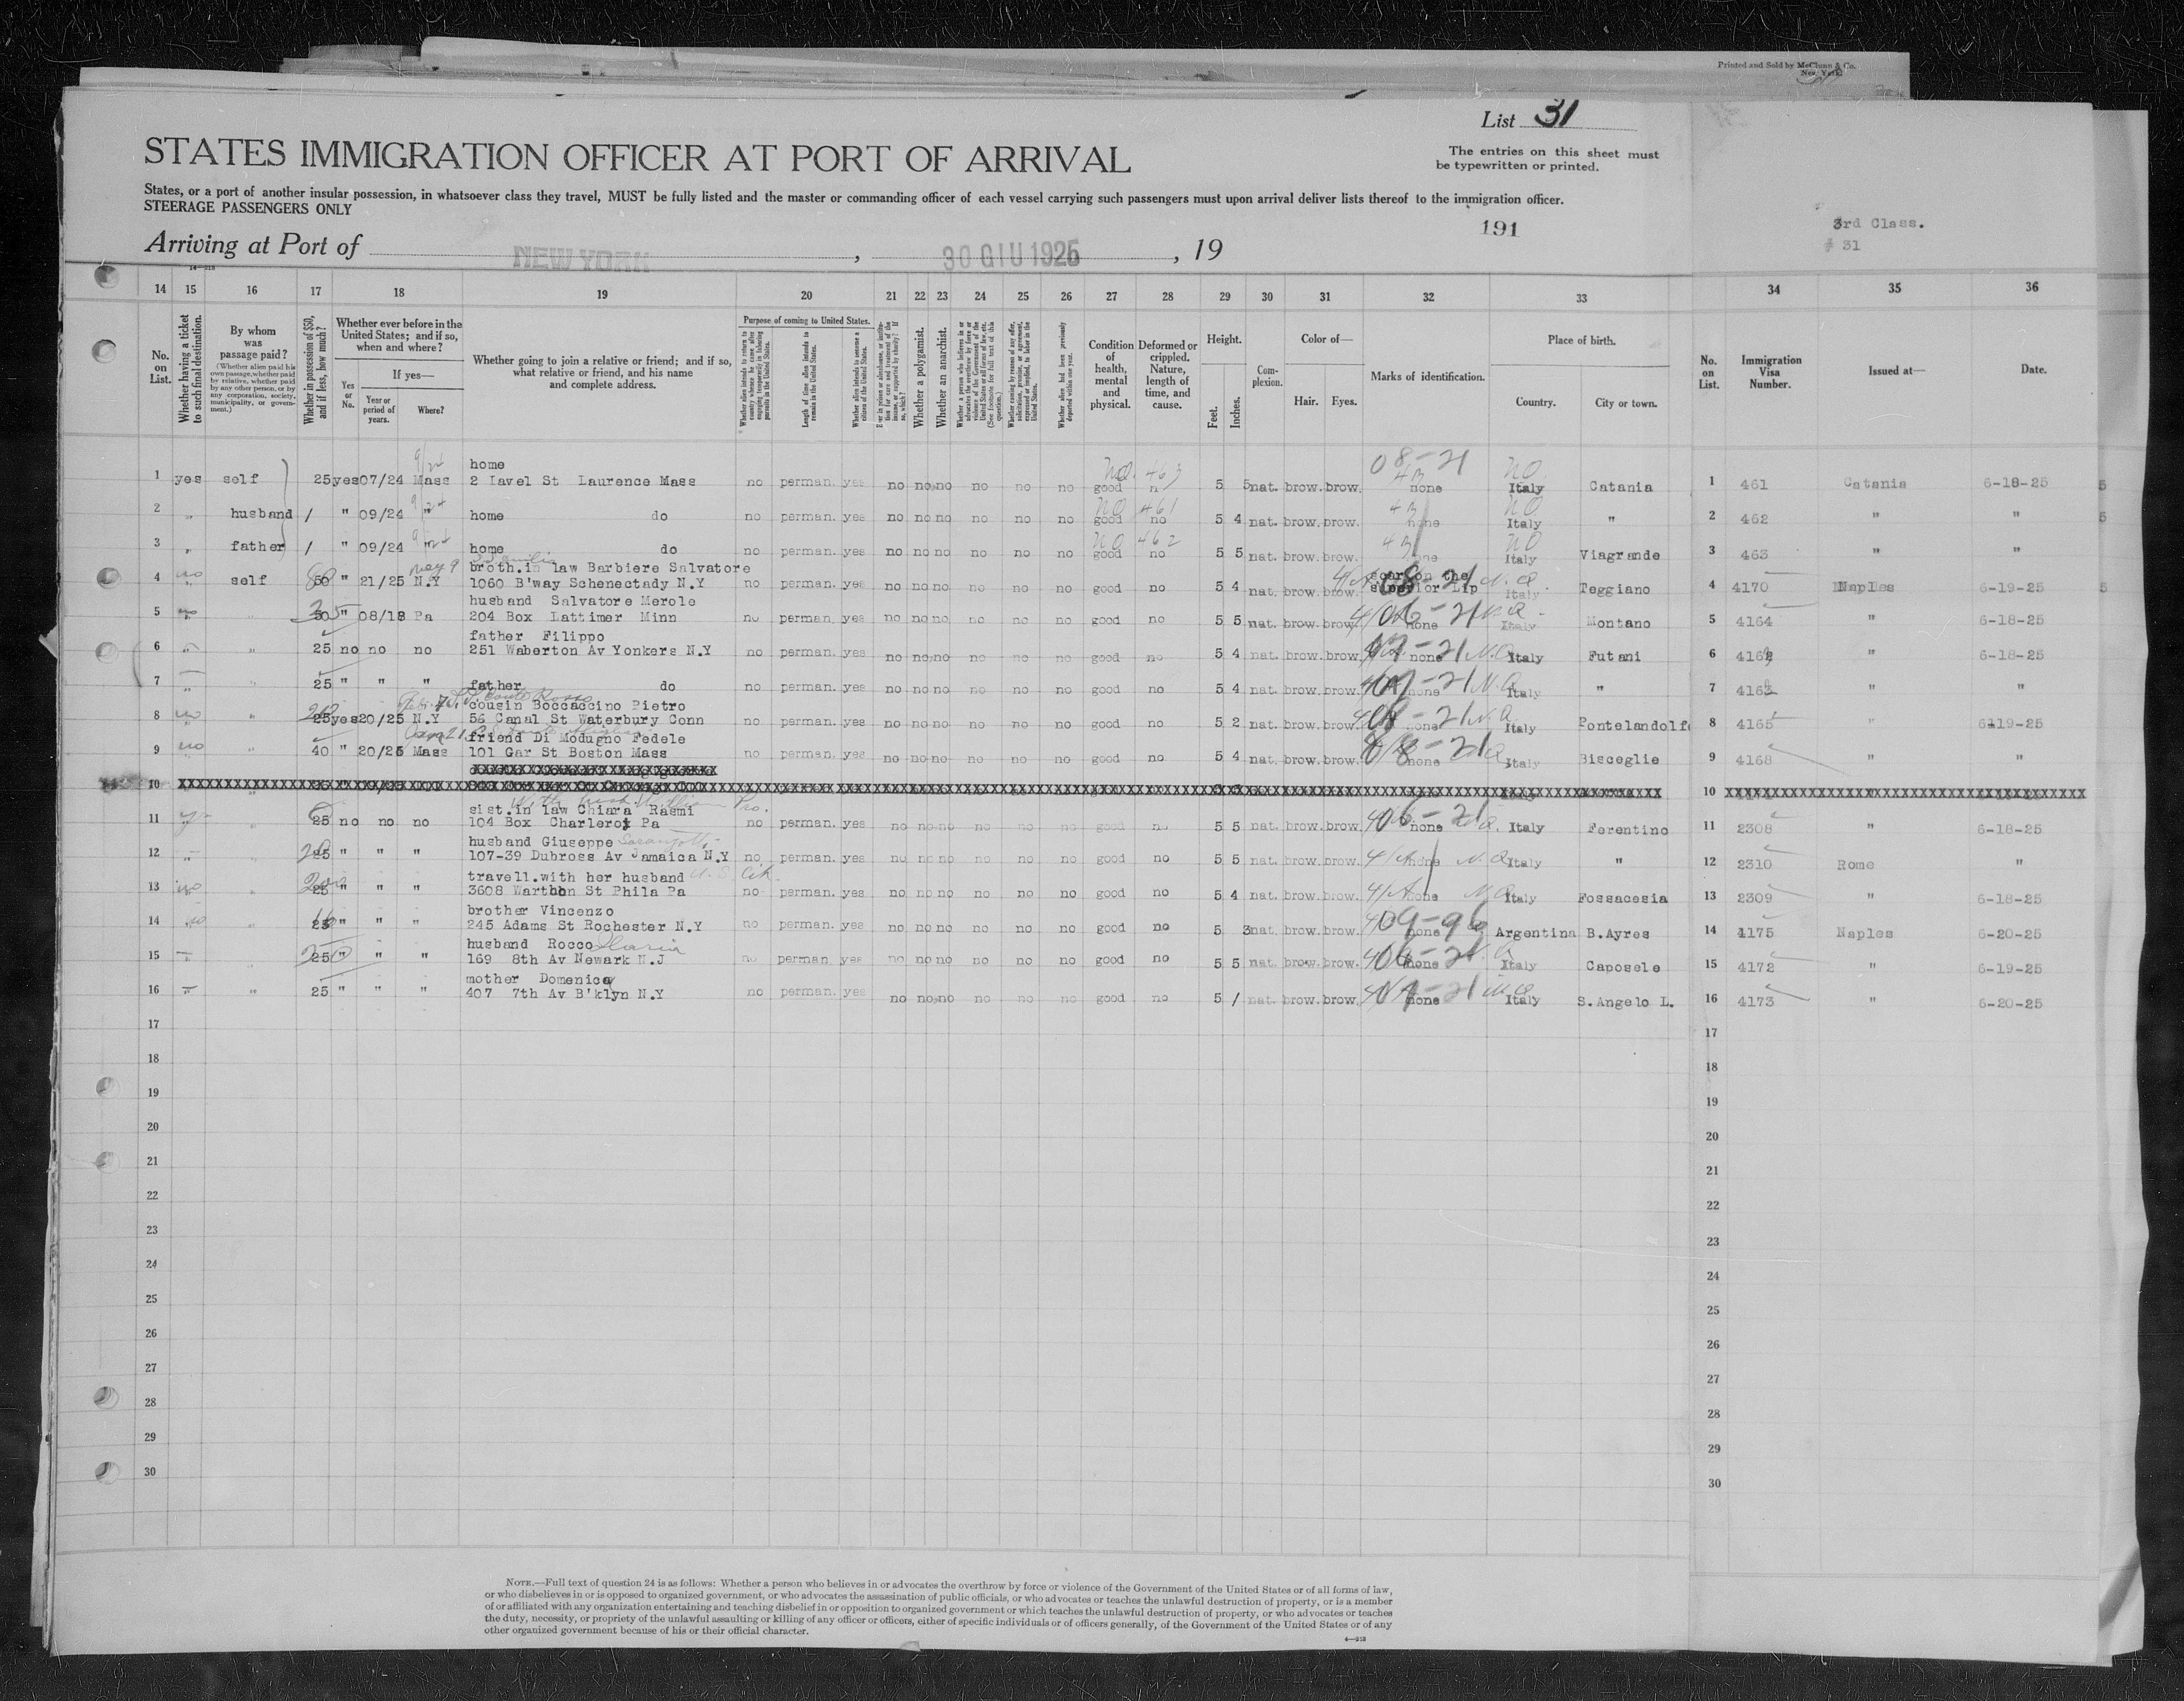 Printed and Sold by McClunn & Co.
New York
List 31
STATES IMMIGRATION OFFICER AT PORT OF ARRIVAL
The entries on this sheet must
be typewritten or printed.
States, or a port of another insular possession, in whatsoever class they travel, MUST be fully listed and the master or commanding officer of each vessel carrying such passengers must upon arrival deliver lists thereof to the immigration officer.
STEERAGE PASSENGERS ONLY
191
3rd Class.
# 31
Arriving at Port of NEW YORK , 30 GIU 1925 , 19
14 15 16 17 18 19 20 21 22 23 24 25 26 27 28 29 30 31 32 33 34 35 36
No. on List.
Whether having a ticket to such final destination.
By whom was passage paid?
(Whether alien paid his own passage, whether paid by relative, whether paid by any other person, or by any corporation, society, municipality, or government.)
Whether in possession of $50, and if less, how much?
Whether ever before in the United States; and if so, when and where?
If yes—
Yes or No.
Year or period of years.
Where?
Whether going to join a relative or friend; and if so, what relative or friend, and his name and complete address.
Purpose of coming to United States.
Whether alien intends to return to country whence he came after engaging temporarily in laboring pursuits in the United States.
Length of time alien intends to remain in the United States.
Whether alien intends to become a citizen of the United States.
Whether a polygamist.
Whether an anarchist.
Whether alien had been previously deported within one year.
Condition of health, mental and physical.
Deformed or crippled. Nature, length of time, and cause.
Height.
Feet. Inches.
Complexion.
Color of—
Hair. Eyes.
Marks of identification.
Place of birth.
Country. City or town.
No. on List.
Immigration Visa Number.
Issued at—
Date.
home
1 yes self 25 yes 07/24 Mass 2 Iavel St Laurence Mass no perman. yes no no no no no no good no 5 5 nat. brow. brow. none Italy Catania 1 461 Catania 6-18-25
2 " husband / " 09/24 " home do no perman. yes no no no no no no good no 5 4 nat. brow. brow. none Italy " 2 462 " "
3 " father / " 09/24 " home do no perman. yes no no no no no no good no 5 5 nat. brow. brow. none Italy Viagrande 3 463 " "
broth.in law Barbiere Salvatore scar on the
4 no self 50 " 21/25 N.Y 1060 B'way Schenectady N.Y no perman. yes no no no no no no good no 5 4 nat. brow. brow. superior Lip Italy Teggiano 4 4170 Naples 6-19-25
husband Salvatore Merole
5 no " " 08/18 Pa 204 Box Lattimer Minn no perman. yes no no no no no no good no 5 5 nat. brow. brow. none Italy Montano 5 4164 " 6-18-25
father Filippo
6 " " 25 no no no 251 Waberton Av Yonkers N.Y no perman. yes no no no no no no good no 5 4 nat. brow. brow. none Italy Futani 6 " 6-18-25
7 " " 25 " " " father do no perman. yes no no no no no no good no 5 4 nat. brow. brow. none Italy " 7 " "
cousin Boccaccino Pietro
8 no " 25 yes 20/25 N.Y 56 Canal St Waterbury Conn no perman. yes no no no no no no good no 5 2 nat. brow. brow. none Italy Pontelandolfo 8 4165 " 6-19-25
friend Di Modugno Fedele
9 no " 40 " 20/25 Mass 101 Gar St Boston Mass no perman. yes no no no no no no good no 5 4 nat. brow. brow. none Italy Bisceglie 9 4168 " "
10 10
sist.in law Chiara Rasmi
11 " 25 no no no 104 Box Charleroi Pa no perman. yes no no no no no no good no 5 5 nat. brow. brow. none Italy Ferentino 11 2308 " 6-18-25
husband Giuseppe
12 " " 25 " " " 107-39 Dubross Av Jamaica N.Y no perman. yes no no no no no no good no 5 5 nat. brow. brow. none Italy " 12 2310 Rome "
travell.with her husband U.S. Cit.
13 no " 25 " " " 3608 Warthon St Phila Pa no perman. yes no no no no no no good no 5 4 nat. brow. brow. none Italy Fossacesia 13 2309 " 6-18-25
brother Vincenzo
14 no " 25 " " " 245 Adams St Rochester N.Y no perman. yes no no no no no no good no 5 3 nat. brow. brow. 09-96 none Argentina B.Ayres 14 4175 Naples 6-20-25
husband Rocco
15 " 25 " " " 169 8th Av Newark N.J no perman. yes no no no no no no good no 5 5 nat. brow. brow. none Italy Caposele 15 4172 " 6-19-25
mother Domenica
16 " 25 " " " 407 7th Av B'klyn N.Y no perman. yes no no no no no no good no 5 / nat. brow. brow. none Italy S.Angelo L. 16 4173 " 6-20-25
17 17
18 18
19 19
20 20
21 21
22 22
23 23
24 24
25 25
26 26
27 27
28 28
29 29
30 30
NOTE.—Full text of question 24 is as follows: Whether a person who believes in or advocates the overthrow by force or violence of the Government of the United States or of all forms of law,
or who disbelieves in or is opposed to organized government, or who advocates the assassination of public officials, or who advocates or teaches the unlawful destruction of property, or is a member
of or affiliated with any organization entertaining and teaching disbelief in or opposition to organized government or which teaches the unlawful destruction of property, or who advocates or teaches
the duty, necessity, or propriety of the unlawful assaulting or killing of any officer or officers, either of specific individuals or of officers generally, of the Government of the United States or of any
other organized government because of his or their official character.